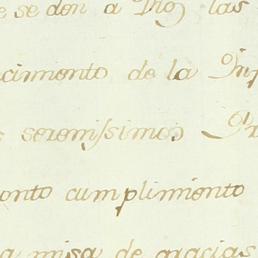 e se den a Dios las
cimiento de la Inf
s serenissimos Pr
onto cumplimiento
a misa de gracias